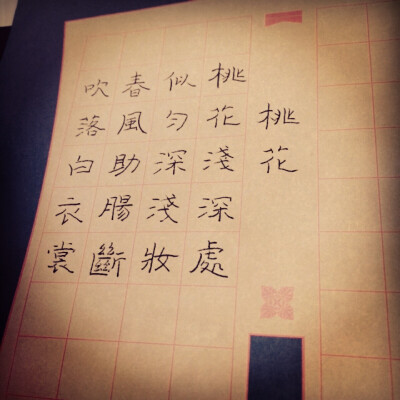 桃花
桃花淺深處
似勻深淺妝
春風助腸斷
吹落白衣裳